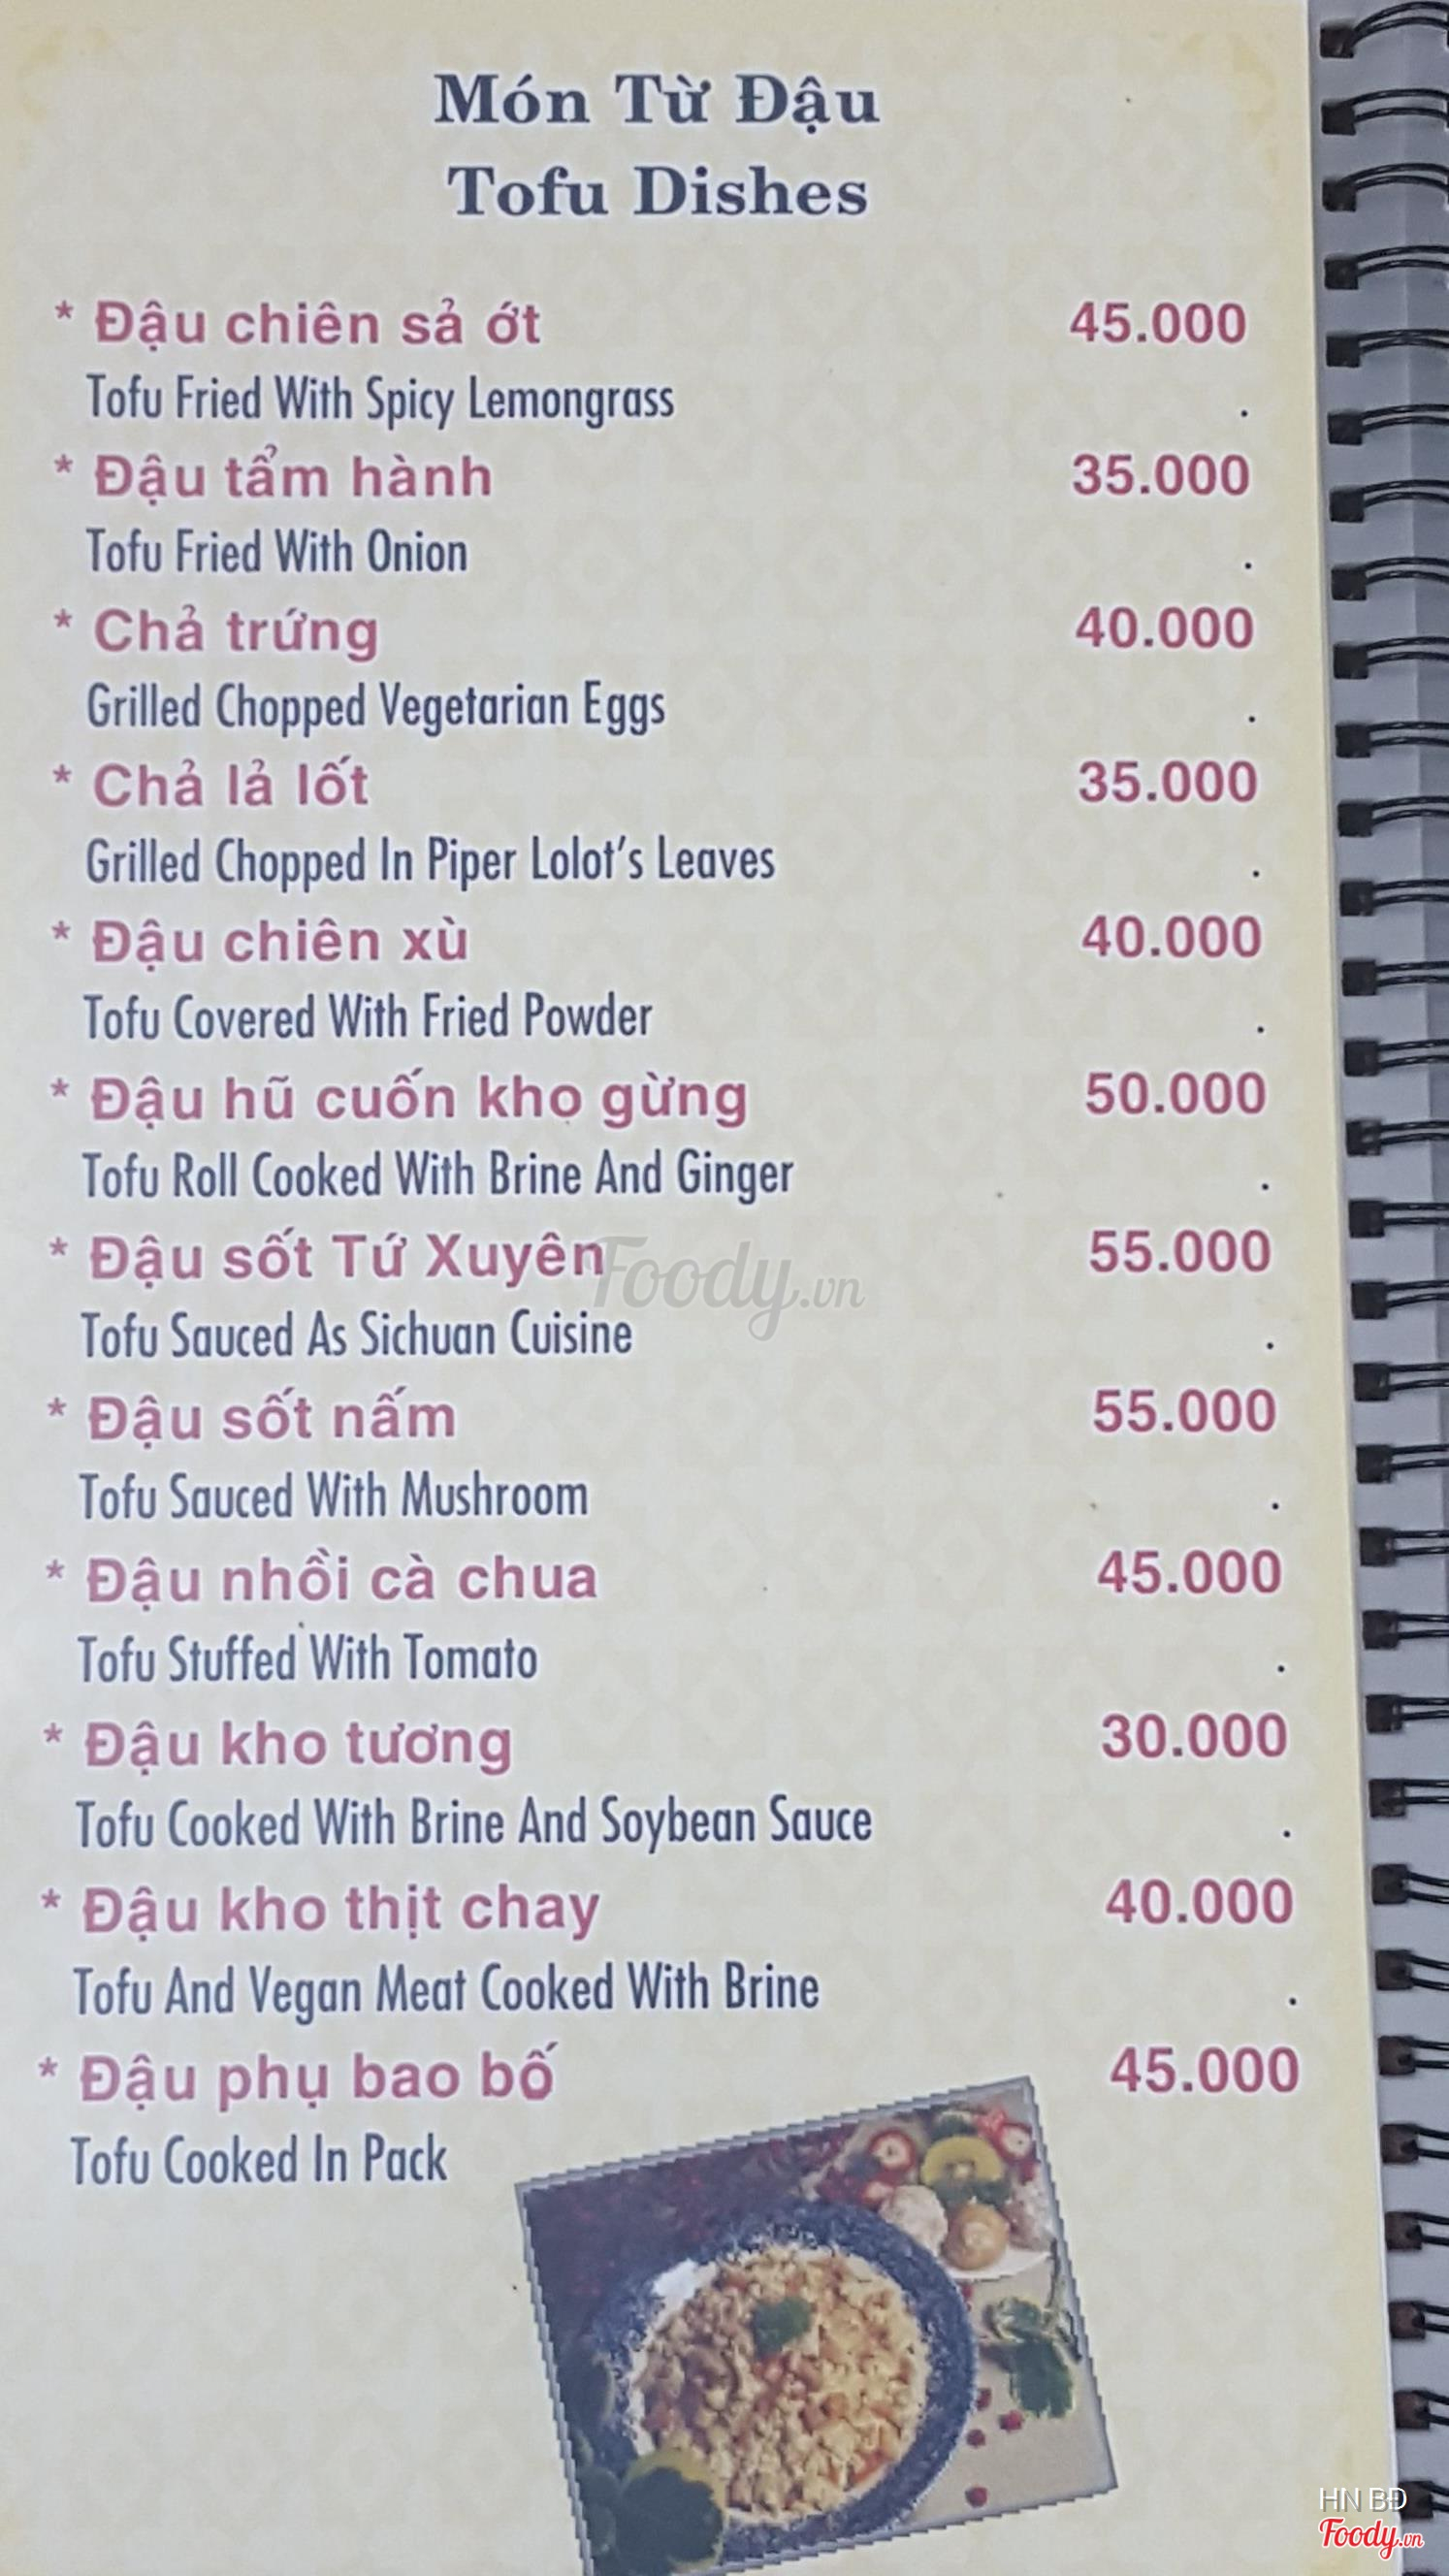 Món Từ Đậu
Tofu Dishes
* Đậu chiên sả ớt 45.000
Tofu Fried With Spicy Lemongrass .
* Đậu tẩm hành 35.000
Tofu Fried With Onion .
* Chả trứng 40.000
Grilled Chopped Vegetarian Eggs .
* Chả lả lốt 35.000
Grilled Chopped In Piper Lolot's Leaves .
* Đậu chiên xù 40.000
Tofu Covered With Fried Powder .
* Đậu hũ cuốn kho gừng 50.000
Tofu Roll Cooked With Brine And Ginger .
* Đậu sốt Tứ Xuyên 55.000
Foody.vn
Tofu Sauced As Sichuan Cuisine .
* Đậu sốt nấm 55.000
Tofu Sauced With Mushroom .
* Đậu nhồi cà chua 45.000
Tofu Stuffed With Tomato .
* Đậu kho tương 30.000
Tofu Cooked With Brine And Soybean Sauce .
* Đậu kho thịt chay 40.000
Tofu And Vegan Meat Cooked With Brine .
* Đậu phụ bao bố 45.000
Tofu Cooked In Pack
HN BĐ
Foody.vn